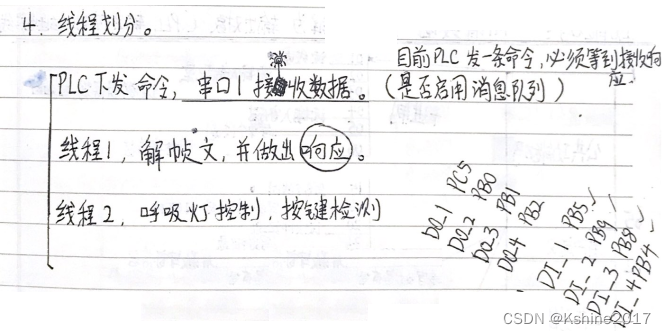 4. 线程划分。
目前PLC发一条命令,必须等到接收响应
PLC下发命令,串口1接收数据。(是否启用消息队列)
线程1,解帧文,并做出响应。
线程2,呼吸灯控制,按键检测
DO_1 PC5
DO_2 PB0
DO_3 PB1
DO_4 PB2
DI_1 PB5 ✓
DI_2 PB9 ✓
DI_3 PB8 ✓
DI_4 PB4 ✓
CSDN @Kshine2017